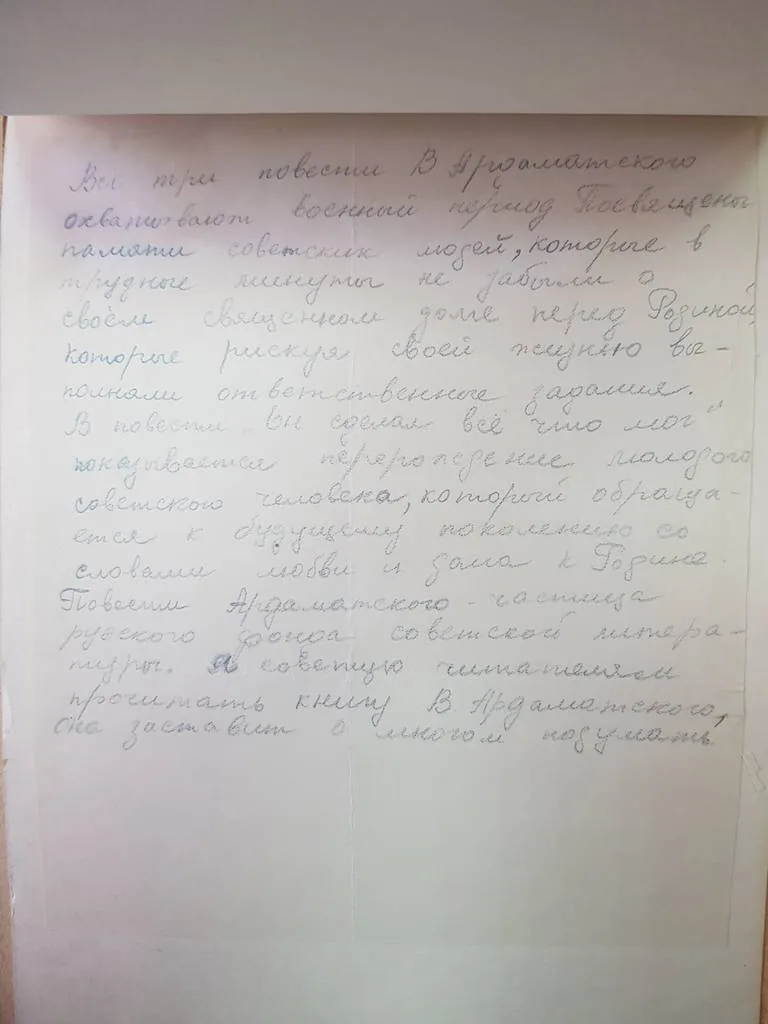 Все три повести В Ардаматского
охватывают военный период Посвящены
памяти советских людей, которые в
трудные минуты не забыли о
своём священном долге перед Родиной,
которые рискуя своей жизнью вы-
полняли ответственные задания.
В повести „Он сделал всё что мог"
показывается перерождение молодого
советского человека, который обраща-
ется к будущему поколению со
словами любви и долга к Родине.
Повести Ардаматского - частица
русского фонда советской литера-
туры. Я советую читателям
прочитать книгу В Ардаматского,
она заставит о многом подумать.